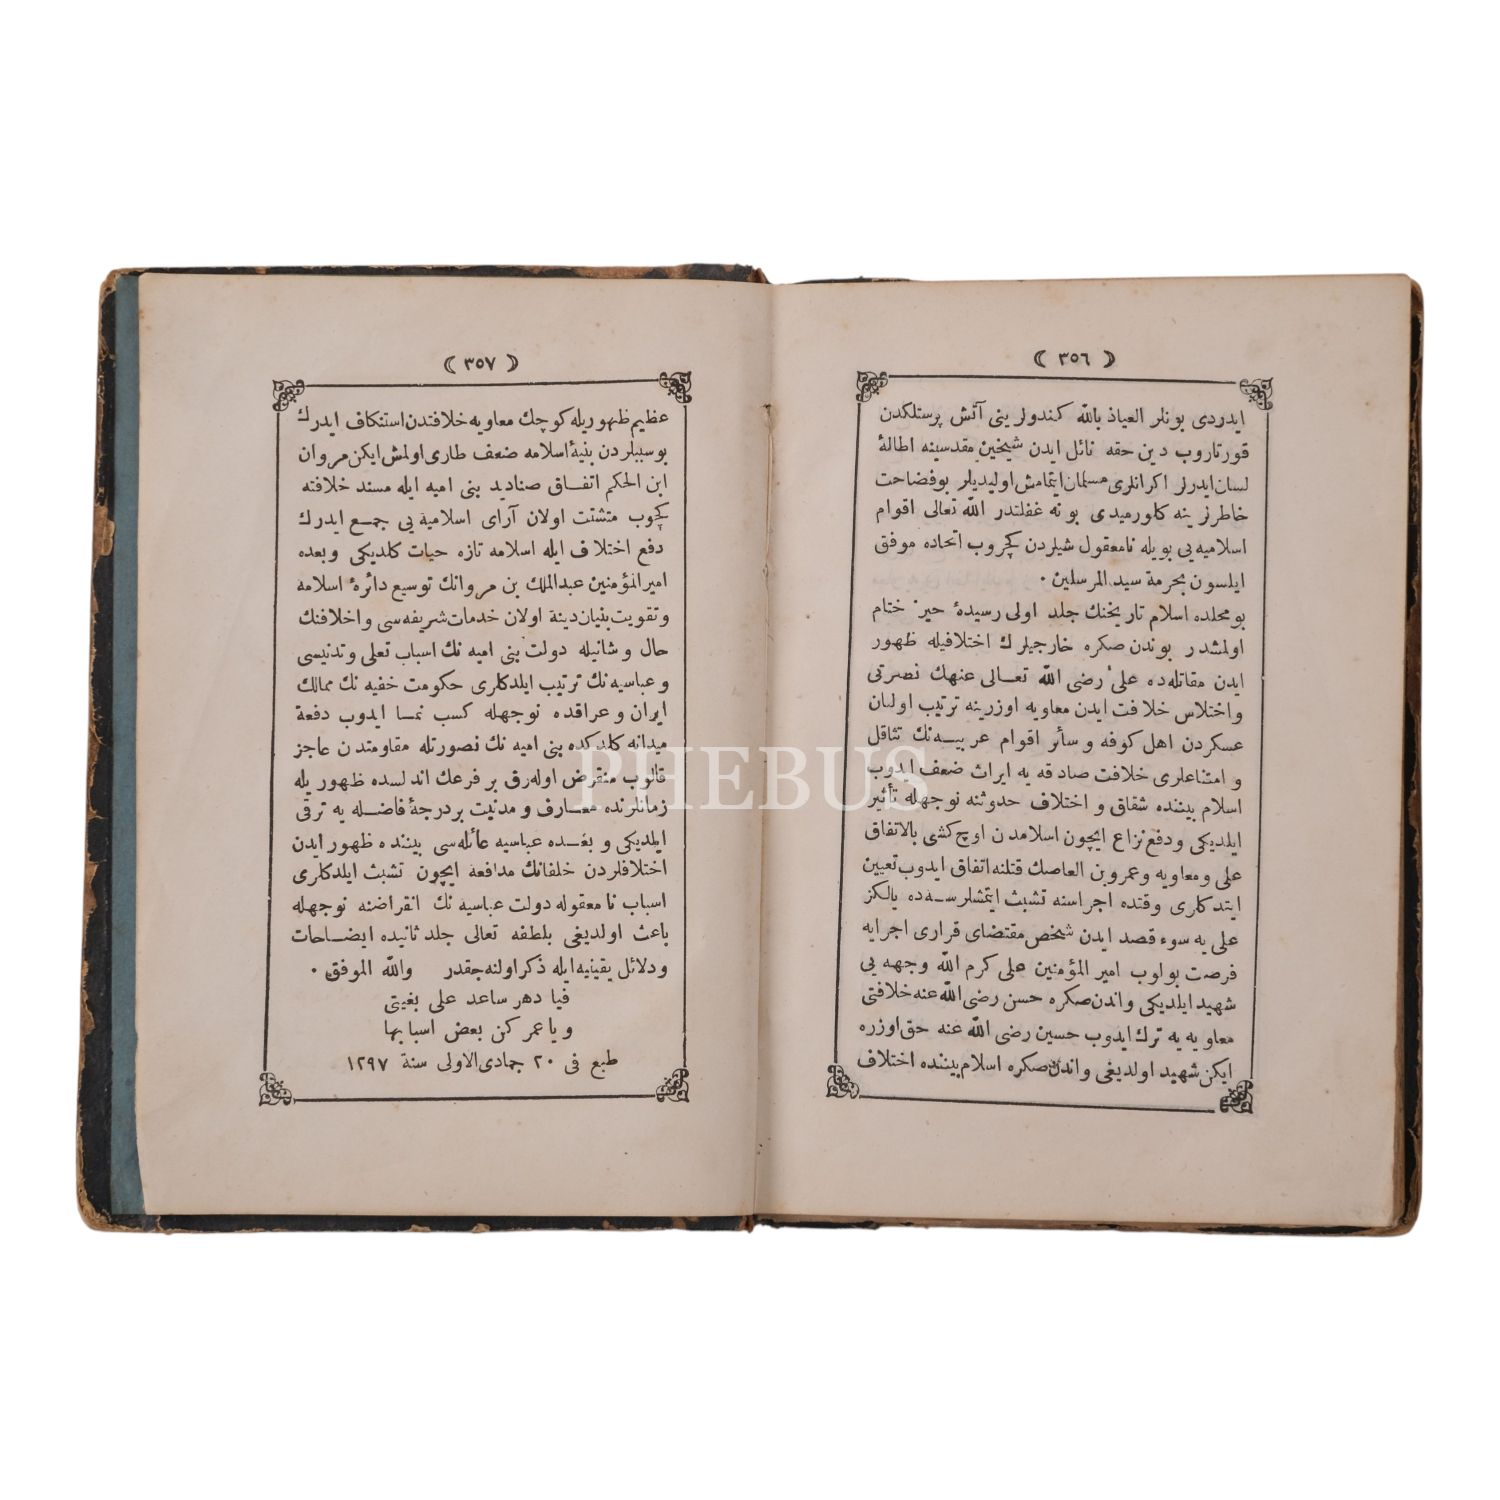 ﴿ ٣٥٦ ﴾
ايدردى بونلر العياذ بالله كندولرينى آتش پرستلكدن
قورتاروب دين حقه نائل ايدن شيخين مقدسينه اطالۀ
لسان ايدرلر اكر انلرى مسلمان ايتمامش اوليديلر بو فضاحت
خاطرلرينه كلورميدى بو نه غفلتدر الله تعالى اقوام
اسلاميه يى بويله نامعقول شيلردن كچروب اتحاده موفق
ايلسون بحرمة سيد المرسلين ٠
بو محلده اسلام تاريخنك جلد اولى رسيدۀ حيز ختام
اولمشدر بوندن صكره خارجيلرك اختلافيله ظهور
ايدن مقاتله ده على رضى الله تعالى عنهك نصرتى
و اختلاس خلافت ايدن معاويه اوزرينه ترتيب اولنان
عسكردن اهل كوفه و سائر اقوام عربيه نك تثاقل
و امتناعلرى خلافت صادقه يه ايراث ضعف ايدوب
اسلام بيننده شقاق و اختلاف حدوثنه نوجهله تأثير
ايلديكى ودفع نزاع ايچون اسلامدن اوچ كشى بالاتفاق
على و معاويه و عمرو بن العاصك قتلنه اتفاق ايدوب تعيين
ايتدكلرى وقتده اجراسنه تشبث ايتمشلرسه ده يالكز
على يه سوء قصد ايدن شخص مقتضاى قرارى اجرايه
فرصت بولوب امير المؤمنين على كرم الله وجهه يى
شهيد ايلديكى واندن صكره حسن رضى الله عنه خلافتى
معاويه يه ترك ايدوب حسين رضى الله عنه حق اوزره
ايكن شهيد اولديغى واندن صكره اسلام بيننده اختلاف
﴿ ٣٥٧ ﴾
عظيم ظهوريله كوچك معاويه خلافتدن استنكاف ايدرك
بوسببلردن بنيۀ اسلامه ضعف طارى اولمش ايكن مروان
ابن الحكم اتفاق صناديد بنى اميه ايله مسند خلافته
كچوب متشتت اولان آراى اسلاميه يى جمع ايدرك
دفع اختلاف ايله اسلامه تازه حيات كلديكى وبعده
امير المؤمنين عبد الملك بن مروانك توسيع دائرۀ اسلامه
و تقويت بنيان دينه اولان خدمات شريفه سى و اخلافنك
حال و شانيله دولت بنى اميه نك اسباب تعلى وتدنيسى
و عباسيه نك ترتيب ايلدكلرى حكومت خفيه نك ممالك
ايران و عراقده نوجهله كسب نما ايدوب دفعة
ميدانه كلدكده بنى اميه نك نصورتله مقاومتدن عاجز
قالوب منقرض اوله رق بر فرعك اندلسده ظهوريله
زمانلرنده معارف و مدنيت بر درجۀ فاضله يه ترقى
ايلديكى و بعده عباسيه عائله سى بيننده ظهور ايدن
اختلافلردن خلفانك مدافعه ايچون تشبث ايلدكلرى
اسباب نامعقوله دولت عباسيه نك انقراضنه نوجهله
باعث اولديغى بلطفه تعالى جلد ثانيده ايضاحات
ودلائل يقينيه ايله ذكر اولنه جقدر والله الموفق ٠
فيا دهر ساعد على بغيتى
ويا عمر كن بعض اسبابها
طبع فى ٢٠ جمادى الاولى سنة ١٢٩٧
PHEBUS